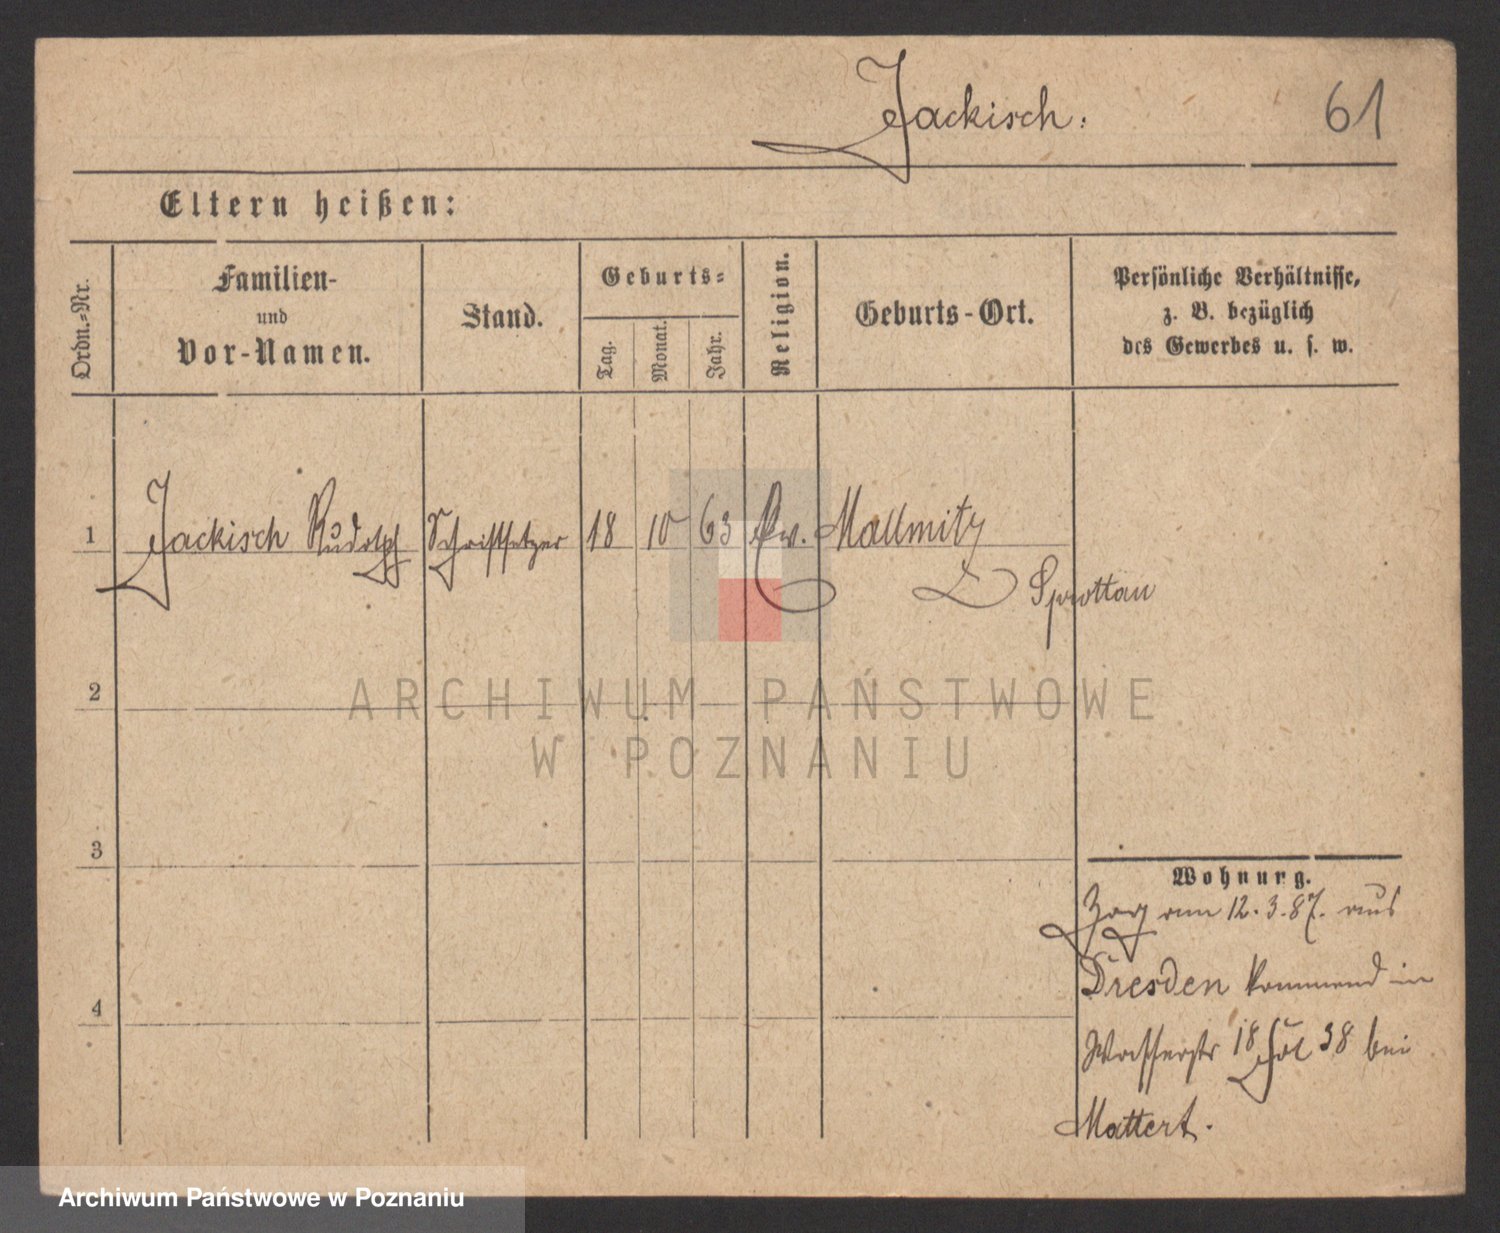 Jackisch:
61
Eltern heißen:
Ordn.-Nr.
Familien-
und
Vor-Namen.
Stand.
Geburts-
Tag.
Monat.
Jahr.
Religion.
Geburts-Ort.
Persönliche Verhältnisse,
z. B. bezüglich
des Gewerbes u. s. w.
1 Jackisch Rudolph Schriftsetzer 18 10 63 Ew. Mallmitz
Sprottau
2
ARCHIWUM PAŃSTWOWE
W POZNANIU
3
Wohnung.
Zog am 12.3.87. aus
Dresden kommend in
4
Wasserstr 18 38 bei
Mattert.
Archiwum Państwowe w Poznaniu